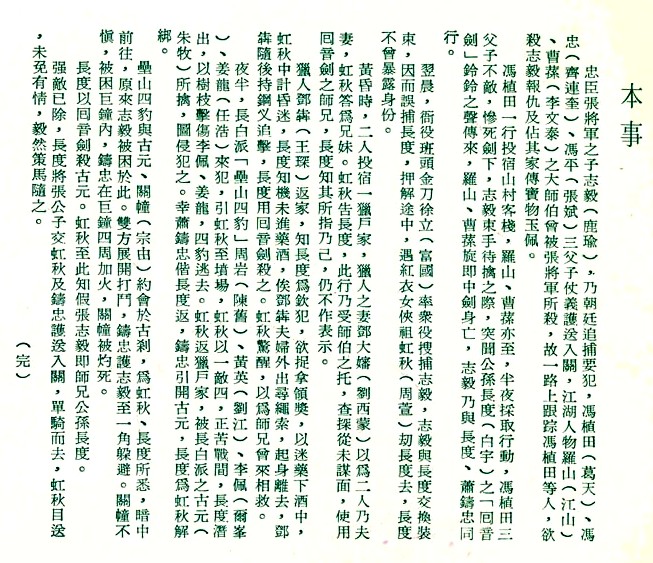 本事
忠臣張將軍之子志毅（鹿瑜），乃朝廷追捕要犯，馮植田（葛天）、馮
忠（齊連奎）、馮平（張斌）三父子仗義護送入關，江湖人物羅山（江山）
、曹葆（李文泰）之大師伯曾被張將軍所殺，故一路上跟踪馮植田等人，欲
殺志毅報仇及佔其家傳寶物玉佩。
馮植田一行投宿山村客棧，羅山、曹葆亦至，半夜採取行動，馮植田三
父子不敵，慘死劍下，志毅束手待擒之際，突聞公孫長度（白宇）之「囘音
劍」鈴鈴之聲傳來，羅山、曹葆旋即中劍身亡，志毅乃與長度、蕭鑄忠同
行。
翌晨，衙役班頭金刀徐立（富國）率衆役搜捕志毅，志毅與長度交換裝
束，因而誤捕長度，押解途中，遇紅衣女俠祖虹秋（周萱）刧長度去，長度
不曾暴露身份。
黃昏時，二人投宿一獵戶家，獵人之妻鄧大嬸（劉西蒙）以為二人乃夫
妻，虹秋答爲兄妹。虹秋告長度，此行乃受師伯之托，查探從未謀面，使用
囘音劍之師兄，長度知其所指乃己，仍不作表示。
獵人鄧犇（王琛）返家，知長度爲欽犯，欲捉拿領獎，以迷藥下酒中，
虹秋中計昏迷，長度知機未進藥酒，俟鄧犇夫婦外出尋繩索，起身離去，鄧
犇隨後持鋼叉追擊，長度用囘音劍殺之。虹秋驚醒，以爲師兄曾來相救。
夜半，長白派「壘山四豹」周岩（陳舊）、黃英（劉江）、李佩（爾峯
）、姜龍（任浩）來犯，引虹秋至墳場，虹秋以一敵四，正苦戰間，長度潛
出，以樹枝擊傷李佩、姜龍，四豹逃去。虹秋返獵戶家，被長白派之古元（
朱牧）所擒，圖侵犯之。幸蕭鑄忠偕長度返，鑄忠引開古元，長度爲虹秋解
綁。
壘山四豹與古元、關幢（宗由）約會於古刹，爲虹秋、長度所悉，暗中
前往，原來志毅被困於此。雙方展開打鬥，鑄忠護志毅至一角躲避。關幢不
愼，被困巨鐘內，鑄忠在巨鐘四周加火，關幢被灼死。
長度以囘音劍殺古元。虹秋至此知假張志毅即師兄公孫長度。
强敵已除，長度將張公子交虹秋及鑄忠護送入關，單騎而去，虹秋目送
，未免有情，毅然策馬隨之。
（完）